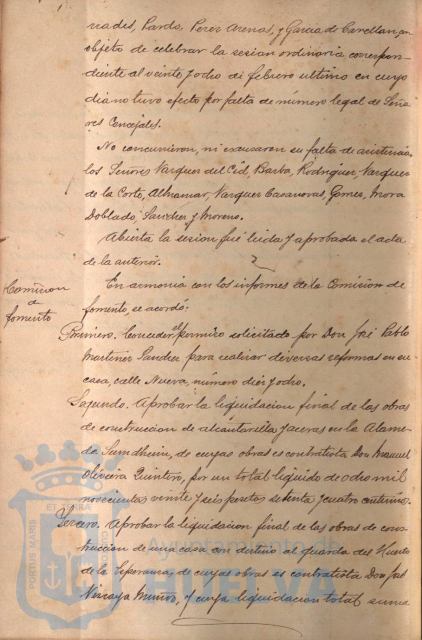 nades, Pardo, Perez Arenas, y Garcia de Castellan, con
objeto de celebrar la sesion ordinaria correspon-
diente al veinte y ocho de febrero ultimo en cuyo
dia no tuvo efecto por falta de número legal de Seño
res Concejales.
No concurrieron, ni excusaron su falta de asistencia
los Señores Vazquez del Cid, Barba, Rodriguez, Vazquez
de la Corte, Vazquez Casanovas, Gomez, Mora
Doblado, Sanchez y Moreno.
Abierta la sesion fué leida y aprobada el acta
de la anterior.
Comision
de
fomento
En armonia con los informes de la Comision de
fomento, se acordó:
Primero. Conceder el permiso solicitado por Don José Pablo
Martinez Sanchez para realizar diversas reformas en su
casa, calle Nueva, número diez y ocho.
Segundo. Aprobar la liquidacion final de las obras
de construccion de alcantarilla y aceras en la Alame-
da Sundheim, de cuyas obras es contratista Don Manuel
Oliveira Quintero, por un total liquido de ocho mil
novecientas veinte y seis pesetas setenta y cuatro centimos.
Tercero. Aprobar la liquidacion final de las obras de cons-
truccion de una casa con destino al guarda del Huerto
de la Esperanza, de cuyas obras es contratista Don José
Vizcaya Muñoz, y cuya liquidacion total suma
PORTUS MARIS
ET TERRAE
Ayuntamiento de
HUELVA